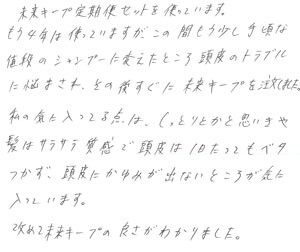 未来キープ定期便セットを使っています。
もう4年は使っていますがこの間もう少し手頃な
値段のシャンプーに変えたところ頭皮のトラブル
に悩まされ、その後すぐに未来キープを注文しました。
私の気に入ってる点は、しっとりとかと思いきや
髪はサラサラ質感で頭皮は1日たってもベタ
つかず、頭皮にかゆみが出ないところが気に
入っています。
改めて未来キープの良さがわかりました。